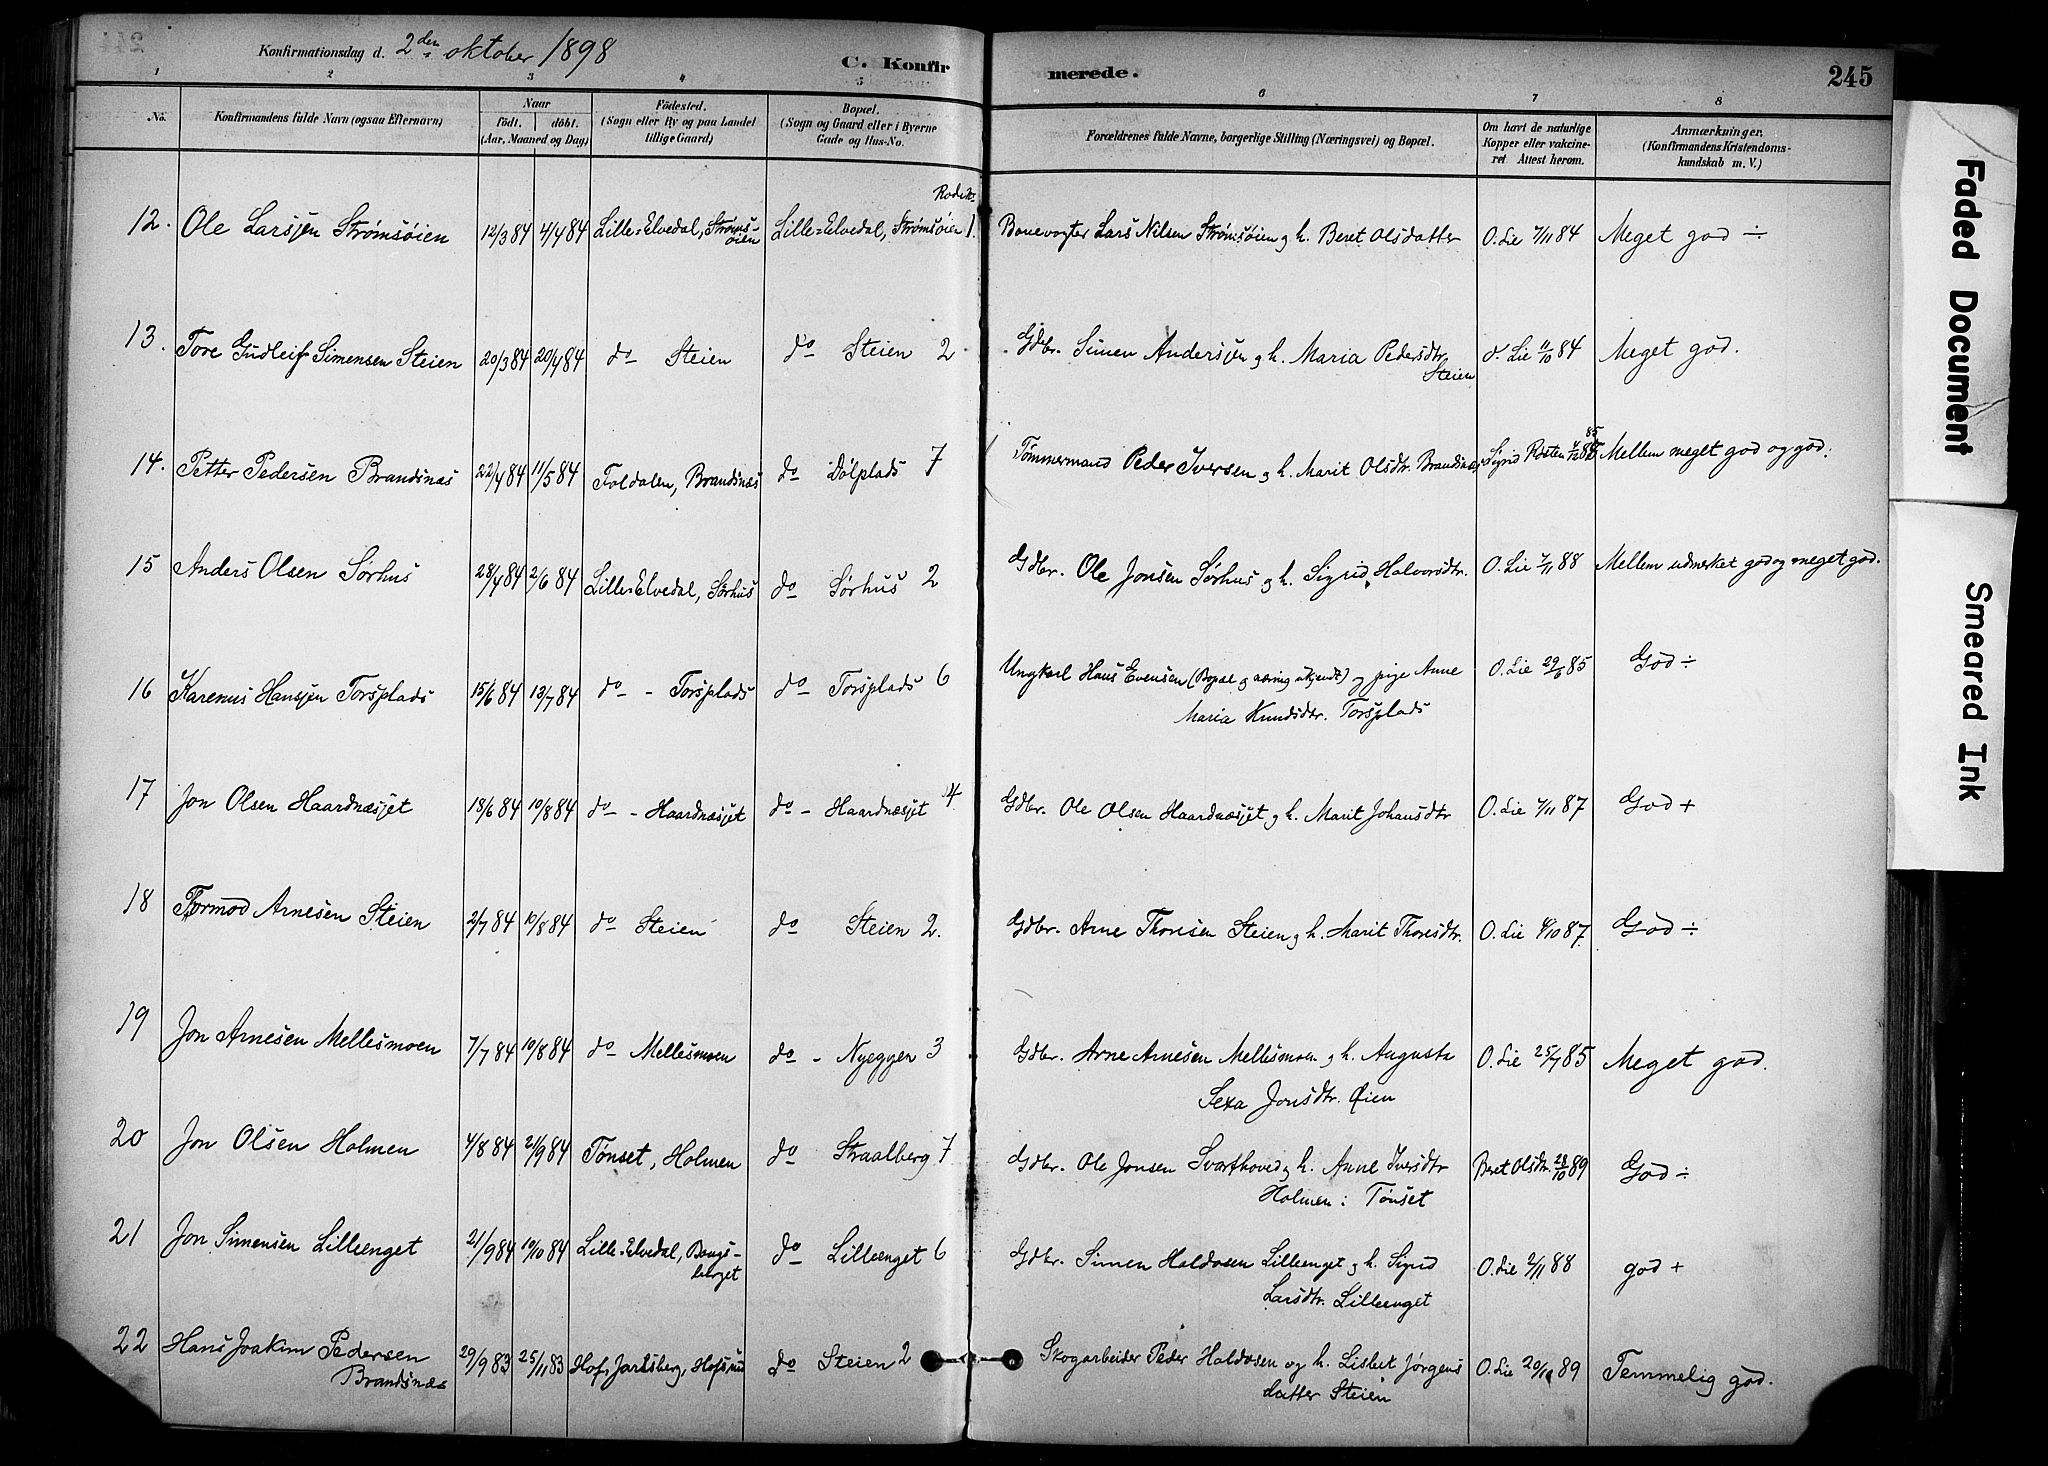 Konfirmationsdag d. 2den oktober 1898
C. Konfirmerede.
245
1 2 3 4 5 6 7 8
No.
Konfirmandens fulde Navn (ogsaa Efternavn)
Naar
födt. döbt.
(Aar, Maaned og Dag)
Födested.
(Sogn eller By og paa Landet
tillige Gaard)
Bopæl.
(Sogn og Gaard eller i Byerne
Gade og Hus-No.
Forældrenes fulde Navne, borgerlige Stilling (Næringsvei) og Bopæl.
Om havt de naturlige
Kopper eller vakcine-
ret Attest herom.
Anmærkninger,
(Konfirmandens Kristendoms-
kundskab m. V.)
12. Ole Larssen Strømsøien 12/3 84 4/4 84 Lille-Elvedal, Strømsøien Lille-Elvedal, Strømsøien 1. Banevogter Lars Nilsen Strømsøien og h. Beret Olsdatter O. Lie 7/11 84 Meget god ÷
13. Tore Gudleif Simensen Steien 20/3 84 20/4 84 do Steien do Steien 2 Gdbr. Simen Anderssen og h. Maria Pedersdtr. Lie 11/10 84 Meget god.
Steien
14. Petter Pedersen Brandsnæs 22/4 84 11/5 84 Foldalen, Brandsnæs do Dølplads 7 Tømmermand Peder Iversen og h. Marit Olsdtr. Brandsnæs Sigrid Mellem meget god og god.
15 Anders Olsen Sørhus 28/4 84 2/6 84 Lille-Elvedal, Sørhus do Sørhus 2 Gdbr. Ole Jonsen Sørhus og h. Sigrid Halvorsdtr. O. Lie 7/11 88 Mellem udmerket god og meget god.
16 Karenus Hanssen Torsplads 15/6 84 13/7 84 do - Torsplads do Torsplads 6 Ungkarl Hans Evensen (Bopæl og næring ukjendt) og pige Anne O. Lie 29/6 85 God ÷
Maria Knudsdtr. Torsplads
17 Jon Olsen Haardnæsjet 18/6 84 10/8 84 do - Haardnæsjet do - Haardnæsjet 4. Gdbr. Ole Olsen Haardnæsjet og h. Marit Johansdtr O. Lie 7/11 87 God +
18 Tormod Arnesen Steien 2/7 84 10/8 84 do Steien do Steien 2. Gdbr. Arne Thoresen Steien og h. Marit Thoresdtr. O. Lie 4/10 87. God ÷
19 Jon Arnesen Mellesmoen 7/7 84 10/8 84 do Mellesmoen do - Nyeggen 3 Gdbr. Arne Arnesen Mellesmoen og h. Augusta O. Lie 25/7 85 Meget god.
Sexa Jonsdtr. Øien
20 Jon Olsen Holmen 4/8 84 21/9 84 Tønset, Holmen do Straalberg 7 Gdbr. Ole Jonsen Svarthoved og h. Anne Iversdtr Beret Olsdtr. 28/10 89 God ÷
Holmen i Tønset
21 Jon Simensen Lilleenget 21/9 84 19/10 84 Lille-Elvedal, Baugs- do Lilleenget 6 Gdbr. Simen Haldosen Lilleenget og h. Sigrid O. Lie 2/11 88 god +
berget Larsdtr. Lilleenget
22 Hans Joakim Pedersen 29/9 83 25/11 83 Hof, Jarlsberg, Hofsrud do Steien 2 Skogarbeider Peder Haldosen og h. Lisbet Jørgens O. Lie 20/11 89 Temmelig god.
Brandsnæs datter Steien
Faded Document
Smeared Ink